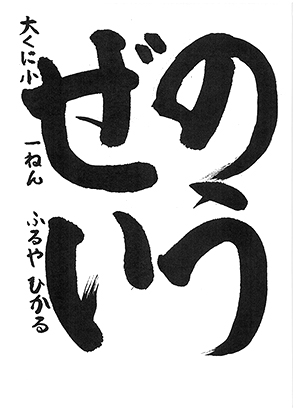 のう
ぜい
大くに小 一ねん ふるや ひかる